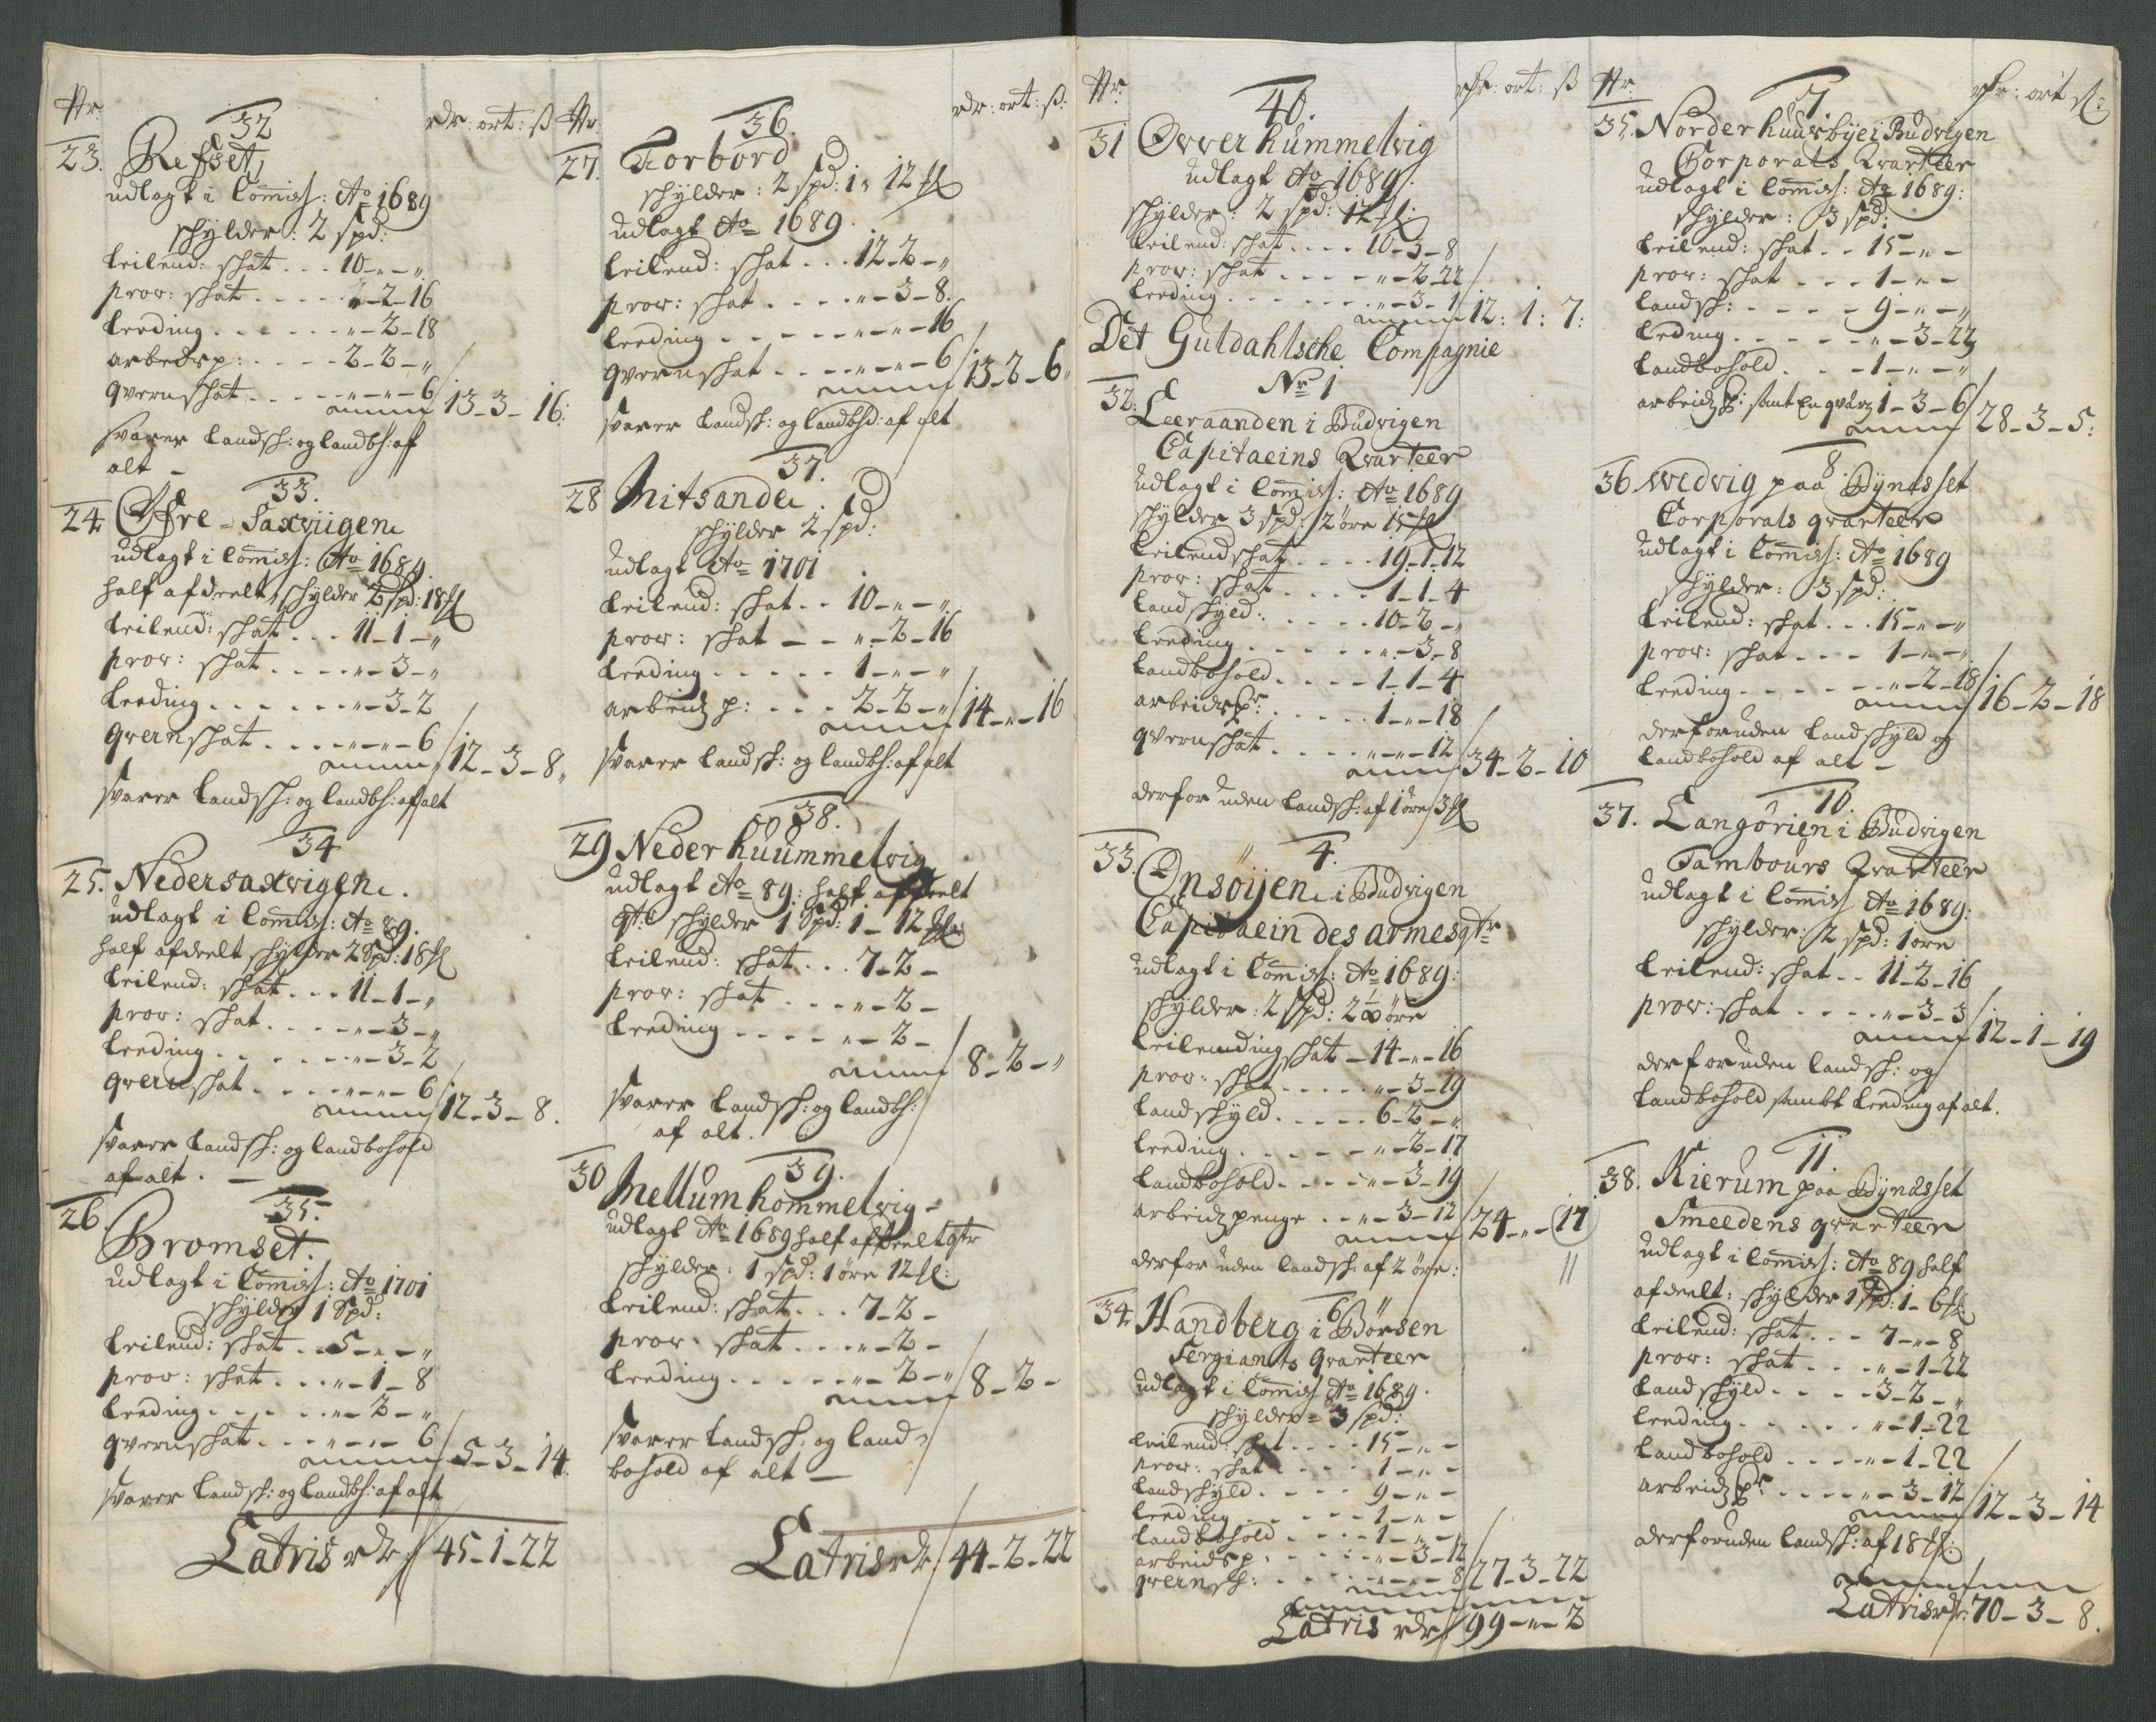 Nr. rdr: ort: ß
32
23. Refset,
udlagt i Comiss: Ao 1689
schylder: 2 spd:
leilend: schat . . . 10 - „ - „
prov: schat . . . . . „ - 2 - 16
leeding . . . . . . „ - 2 - 18
arbedsp: . . . . 2 - 2 - „
qvernschat . . . . „ - „ - 6 / 13 - 3 - 16:
svarer landsch: og landbh: af
alt -
33.
24. Øfre - Saxviigen
udlagt i Comiss: Ao 1689.
half afdeelt, schylder 2 spd: 18 fl
leilend: schat . . . 11 - 1 - „
prov: schat . . . . . „ - 3 - „
leeding . . . . . . . „ - 3 - 2
qvernschat . . . . „ - „ - 6 / 12 - 3 - 8 „
svarer landsch: og landbh: af alt
34
25. Nedersaxvigen.
udlagt i Comiss: Ao 89.
half afdeelt schylder 2 Spd: 18 fl
leilend: schat . . . 11 - 1 - „
prov: schat . . . . . „ - 3 - „
leeding . . . . . . . „ - 3 - 2
qvernschat . . . . „ - „ - 6 / 12 - 3 - 8.
svarer landsch: og landbohold
af alt. -
35.
26. Bromset.
udlagt i Comiss: Ao 1701
schylder 1 Spd:
leilend: schat . . 5 - „ - „
prov: schat . . . „ - 1 - 8
leeding . . . . . „ - 2 - „
qvernschat . . . „ - „ - 6 / 5 - 3 - 14.
svarer landsch: og landbh: af alt
Latris rdr / 45 - 1 - 22
Nr. rdr: ort: ß:
36.
27. Torbord
schylder: 2 spd: 1 „ 12 fl
udlagt Ao 1689.
leilend: schat . . . 12 - 2 - „
prov: schat . . . . „ - 3 - 8.
leeding . . . . . „ - „ - 16
qvernschat . . . . „ - „ - 6 / 13 - 2 - 6 „
svarer landsch: og landbhd: af alt
37.
28 Mitsande.
schylder 2 spd:
udlagt Ao 1701
leilend: schat . . 10 - „ - „
prov: schat - - „ - 2 - 16
leeding . . . . . 1 - „ - „
arbeidz p: . . . 2 - 2 - „ / 14 - „ - 16
svarer landsch: og landbh: af alt
38.
29 Neder huummelvig
udlagt Ao 89: half afdeelt
schylder 1 Spd: 1 - 12 fl
leilend: schat . . . 7 - 2 -
prov: schat . . . „ - 2 -
leeding . . . . „ - 2 -
8 - 2 - „
svarer landsch: og landbh:
af alt.
39.
30 Mellum hommelvig -
udlagt Ao 1689 half afdeelt qtr
schylder: 1 spd: 1 öre 12 fl:
leilend: schat . . . 7 - 2 -
prov: schat . . . „ - 2 -
leeding . . . . . „ - 2 - „ / 8 - 2 -
svarer landsch: og land-
bohold af alt -
Latris rdr / 44 - 2 - 22
Nr. rdr: ort: ß
40.
31 Øvver hummelvig
udlagt Ao 1689.
schylder: 2 spd: 12 fl:
leilend: schat . . . . 10 - 3 - 8
prov: schat . . . . . „ - 2 - 22
leeding . . . . . . „ - 3 - 1 / 12: 1: 7:
Det Guldahlsche Compagnie
Nr 1
32. Leeraanden i Büdvigen
Capitaeins Qvarteer
udlagt i Comiss: Ao 1689
schylder 3 spd: 2 öre 15 fl
leilend schat . . . . 19 - 1 - 12
prov: schat . . . . . 1 - 1 - 4
landschyld: . . . . . 10 - 2 - „
leeding . . . . . . „ - 3 - 8
landbohold . . . . 1 - 1 - 4
arbeidspr: . . . . . 1 - „ - 18
qvernschat . . . . „ - „ - 12 / 34 - 2 - 10
derfor uden landsch: af 1 öre 3 fl
4.
33. Onsöijen i Büdvigen
Capitaein des armes qtr
udlagt i Comiss: Ao 1689:
schylder: 2 spd: 2 1/8 öre
leilending schat - 14 - „ - 16
prov: schat . . . . . „ - 3 - 19
landschyld . . . . . 6 - 2 - „
leeding . . . . . . „ - 2 - 17
landbohold . . . . „ - 3 - 19
arbeidz penge . . „ - 3 - 12 / 24 - „ - 17
derfor uden landsch: af 2 öre:
6
34. Handberg i Börsen
Sergiants Qvarteer
udlagt i Comiss Ao 1689.
schylder = 3 spd:
leilend: schat . . . . 15 - „ -
prov: schat . . . . 1 - „ -
landschyld . . . . 9 - „ -
leeding . . . . . . 1 - „ -
landbohold . . . . 1 - „ -
arbeidsp: . . . . . „ - 3 - 12
qvernsch: . . . . „ - „ - 8 / 27 - 3 - 22
Latris rdr / 99 - „ - 2
Nr. rdr: ort ß:
7.
35. Nörder huusbye i Büdvigen
Corporals Qvarteer
udlagt i Comiss: Ao 1689:
schylder: 3 spd:
leilend: schat . . 15 - „ -
prov: schat . . . 1 - „ -
landsch: . . . . 9 - „ - „
leding . . . . . . „ - 3 - 23
landbohold . . . 1 - „ - „
arbeidz p: samt en qværn 1 - 3 - 6 / 28 - 3 - 5:
8.
36 Wedvig paa Bynesset
Corporals qvarteer
udlagt i Comiss: Ao 1689
schylder: 3 spd:
leilend: schat . . . 15 - „ - „
prov: schat . . . 1 - „ - „
leeding . . . . . . „ - 2 - 18 / 16 - 2 - 18
derforuden landschyld og
landbohold af alt -
10.
37. Langörien i Büdvigen
Tambours Qvarteer
udlagt i Comiss Ao 1689:
schylder: 2 spd: 1 öre
leilend: schat . . 11 - 2 - 16
prov: schat . . . . „ - 3 - 3 / 12 - 1 - 19
derforuden landsch: og
landbohold sambt leeding af alt.
11.
38. Kierum paa Bynesset
Smeedens qvarteer
udlagt i Comiss: Ao 89 half
afdeelt: schylder 1 spd: 1 - 6 fl:
leilend: schat . . . 7 - „ - 8
prov: schat . . . . „ - 1 - 22
landschyld . . . . 3 - 2 - „
leeding . . . . . „ - 1 - 22
landbohold . . . . „ - 1 - 22
arbeidz pr: . . . . „ - 3 - 12 / 12 - 3 - 14
derforuden landsch: af 18 fl:
Latris rdr: 70 - 3 - 8.